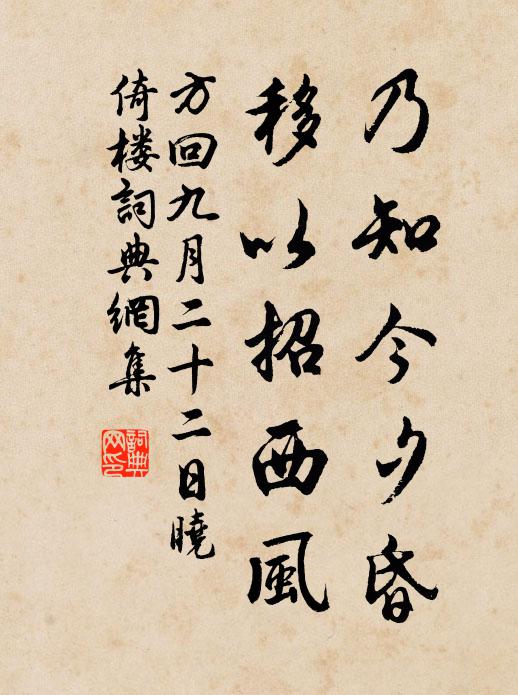 乃知今夕昏
移以招西風
方回九月二十二日曉
倚楼詞典網集
詞典网印